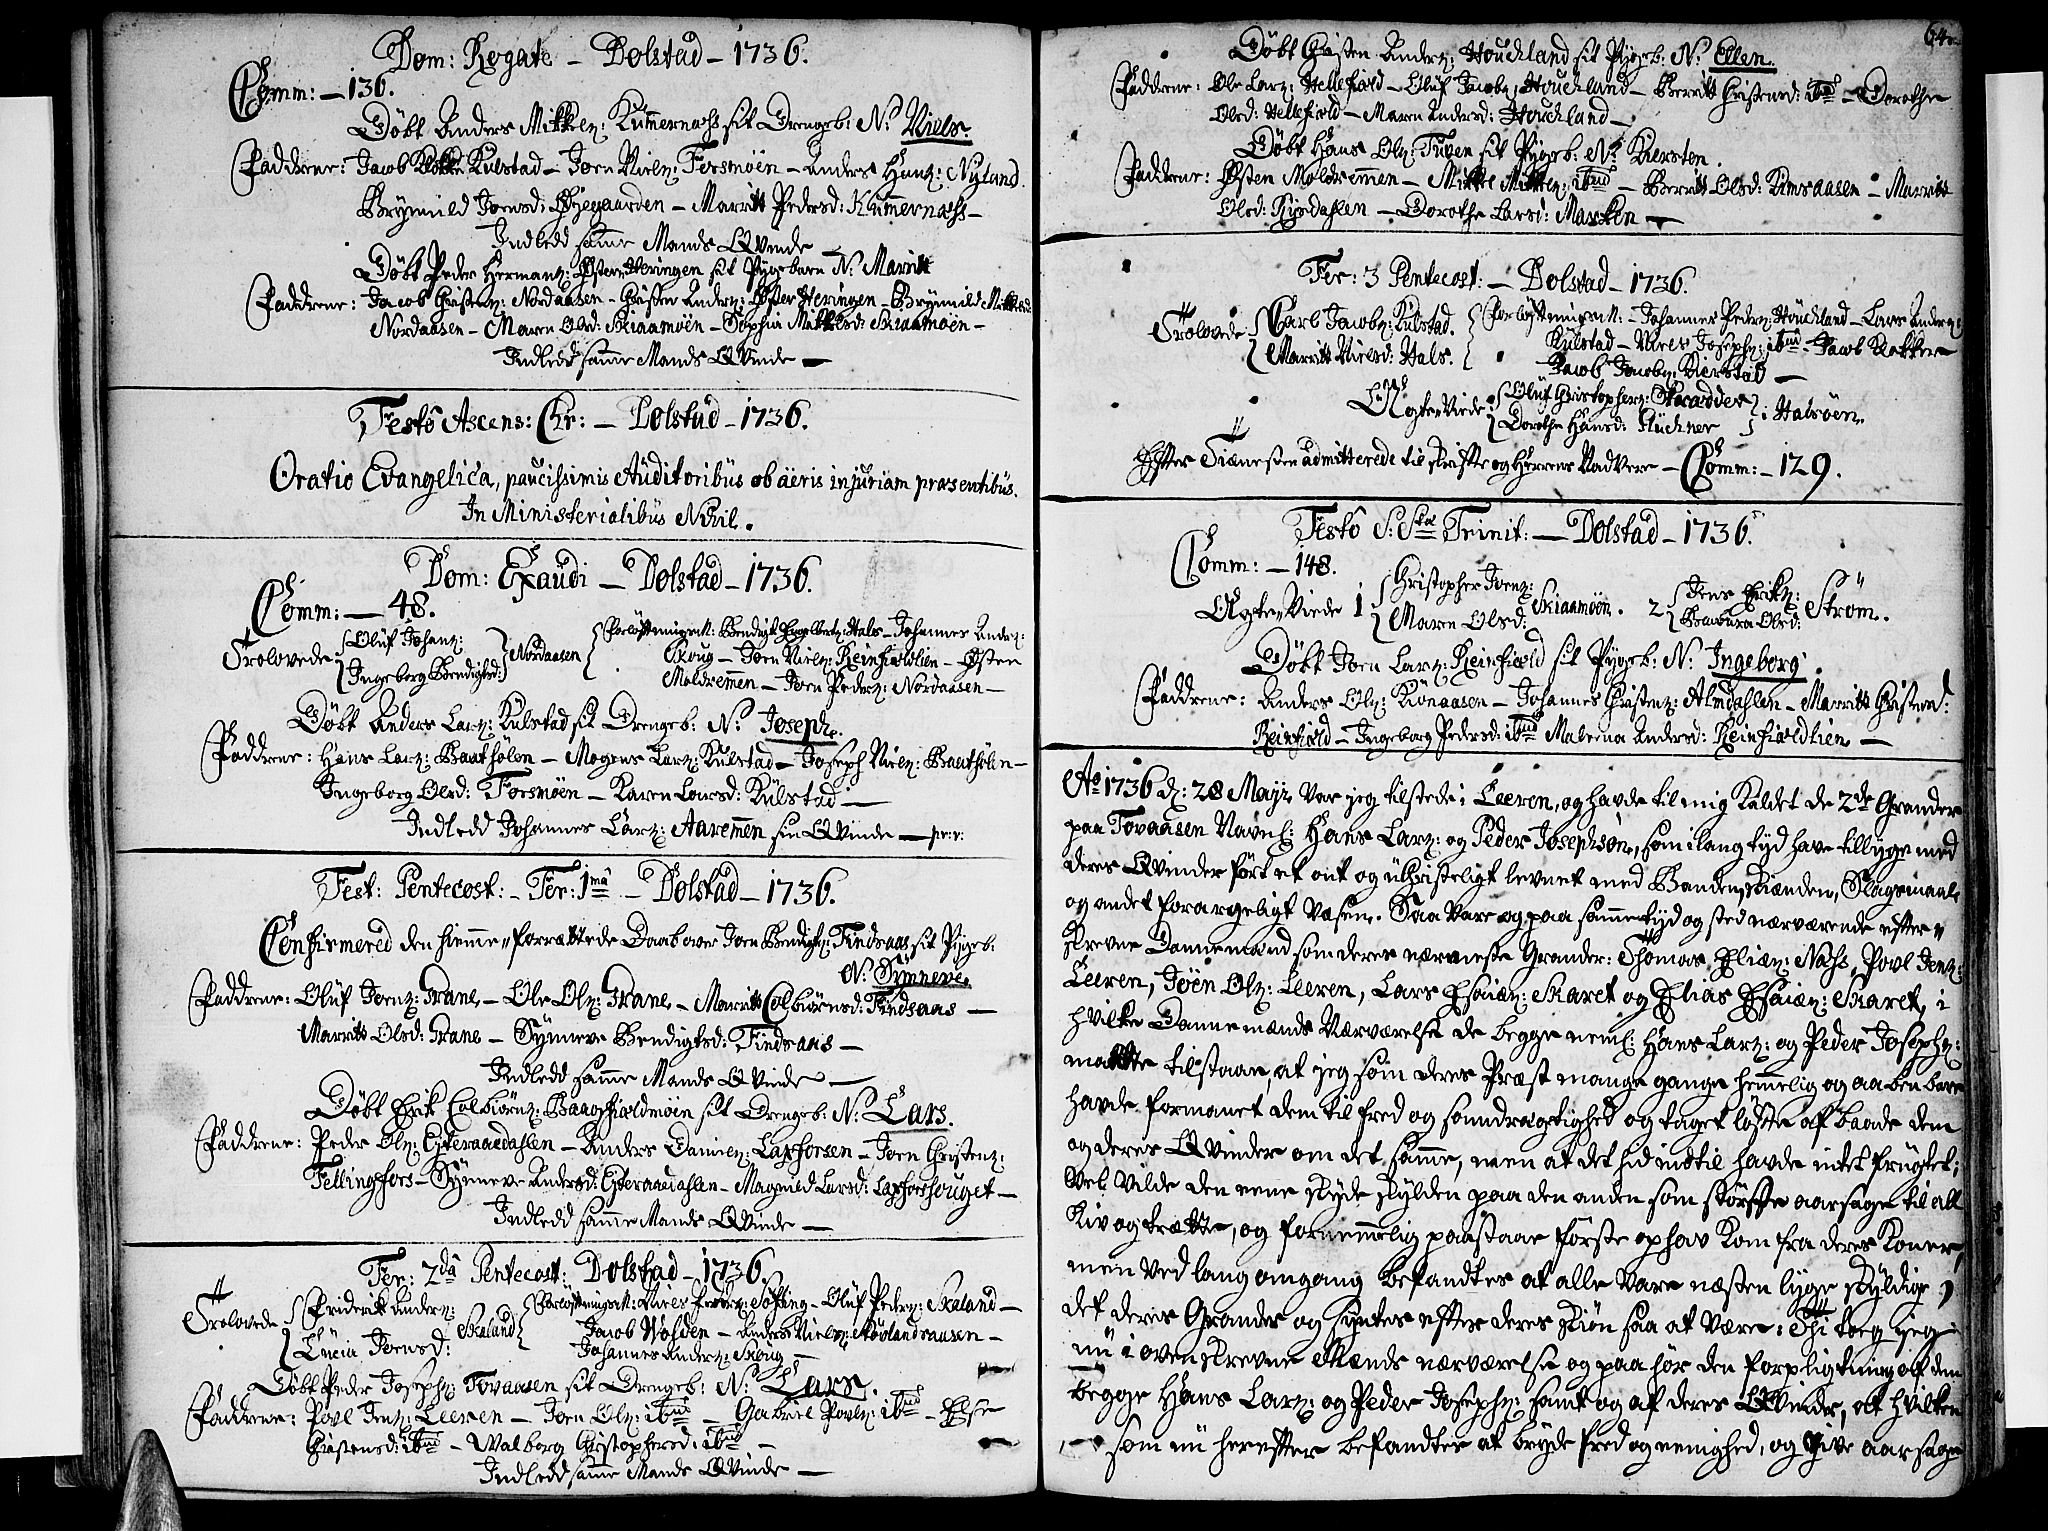 Dom: Rogate – Dolstad – 1736.
Comm: – 136.
Döbt Anders Mikkelz: Kummernæss sit Drengeb: N: Niels.
Faddrene: Jacob Klokker Kulstad – Joen Nielz: Forsmöen – Anders Hanz: Nyland.
Brynnild Joensd: Öyegaarden – Marritt Pedersd: Kummernæss –
Indledd samme Mands Qvinde
Döbt Peder Hermanz: Öster Heringen sit Pygebarn N: Marritt
Faddrene: Jacob Christenz: Nordaasen – Christen Anderz: Öster Heringen – Brynnild Mikkelsd:
Nordaasen – Maren Olsd: Skiaamöen – Sophia Mikkelsd: Skiaamöen –
Indledd samme Mands Qvinde –
Festo Ascens: Chr: – Dolstad – 1736.
Oratio Evangelica, paucissimis Auditoribus ob aëris injuriam præsentibus.
In Ministerialibus Nihil.
Dom: Exaudi – Dolstad – 1736.
Comm: – 48.
Trolovede Oluf Johanz: Ingeborg Bendigtsd: Nordaasen Forlöftningsm: Bendigt Engelbertz: Hals – Johannes Anderz:
Skoug – Joen Nielz: Reinfiældlien – Östen
Moldremmen – Joen Pederz: Nordaasen –
Döbt Anders Larz: Kulstad sit Drengeb: N: Joseph.
Faddrene: Hans Larz: Baatfiölen – Mogens Larz: Kulstad – Joseph Nielz: Baatfiöln –
Ingeborg Olsd: Forsmöen – Karen Larsd: Kulstad –
Indledd Johannes Larz: Aaremmen sin Qvinde –
Fest: Pentecost: – Fer: 1mâ – Dolstad – 1736.
Confirmered den hiemme forrættede Daab over Joen Bendigtz: Findsaas sit Pygeb:
N: Synneve.
Faddrene: Oluf Joenz: Grane – Ole Olz: Grane – Marritt Colbiörnsd: Findsaas –
Marritt Olsd: Grane – Synneve Bendigtsd: Findsaas –
Indledd samme Mands Qvinde –
Döbt Erik Colbiörnz: Baagfiældmöen sit Drengeb: N: Lars.
Faddrene: Peder Olz: Eyteraaedahlen – Anders Daniez: Laxforsen – Joen Christenz:
Fellingfors – Synneve Andersd: Eyteraaedahlen – Magnild Larsd: Laxforshouget –
Indledd samme Mands Qvinde –
Fer: 2dâ Pentecost: Dolstad – 1736.
Trolovede Friderik Anderz: Lucia Joensd: Skaland Forlöftningsm: Niels Söfting – Oluf Pederz: Skaland –
Jacob Volden – Anders Nielz: –
Johannes Anderz: Skoug –
Döbt Peder Josephz: Tovaasen sit Drengeb: N: Lars.
Faddrene: Povl Jenz: Leeren – Joen Olz: ibid – Gabriel Povlz: ibid – Else
Christensd: ibid – Valborg Christophersd: ibid –
Indledd samme Mands Qvinde –
64.
Döbt Christen Anderz: Houchland sit Pygeb: N: Ellen.
Faddrene: Ole Larz: Hellefiæld – Oluf Jacobz: Houchland – Berritt Christensd: ibid – Dorothe
Olsd: Hellefiæld – Maren Andersd: Houchland –
Döbt Hans Olz: Tuven sit Pygeb: N: Kiersten.
Faddrene: Östen Moldremmen – Mikkel Mikkelz: ibid – Berritt Olsd: Remsaasen – Marritt
Olsd: Rysdahlen – Dorothe Larsd: Marken –
Fer: 3 Pentecost: – Dolstad – 1736.
Trolovede Carl Jacobz: Kulstad. Marritt Nielsd: Hals. Forlöftningsm: – Johannes Pederz: Houchland – Lars Anderz:
Kulstad – Niels Josephz: ibid – Jacob Klokker
Jacob Jacobz: Kierstad –
Ægte Viede Oluf Christopherz: Skrædder Dorothe Hansd: Fluchner i Halsöen.
Efter Tienesten admitterede til skrifte og Herrens Nadvere – Comm: – 129.
Festo S:Stæ Trinit: – Dolstad – 1736.
Comm: – 148.
Ægte Viede 1 Christopher Joenz: Maren Olsd: Skiaamöen. 2 Jens Erikz: Barbara Olsd: Ström.
Döbt Joen Larz: Reinfiæld sit Pygeb: N: Ingeborg
Faddrene: Anders Olz: Kiönaasen – Johannes Christenz: Almdahlen – Marritt Christensd:
Reinfiæld – Ingeborg Pedersd: ibid Malena Andersd: Reinfiældlien –
Ao 1736 d: 28 Maji var jeg tilstede i Leeren, og havde til mig kaldet de 2de Grander
paa Tovaasen Navnl: Hans Larz: og Peder Josephsön, som i lang tyd have tillyge med
deres Qvinder fört et ont og uchristeligt levnet med Banden, skienden, Slagsmaal
og andet forargeligt væsen. Saa vare og paa samme tyd og sted nærværende efter-
skrevne Dannemænd som deres nærmeste Grander: Thomas Eliæz: Næss, Povl Jenz:
Leeren, Joen Olz: Leeren, Lars Esaiæz: Skaret og Elias Esaiæz: Skaret, i
hvilke Dannemænds Nærværelse de begge neml: Hans Larz: og Peder Josephz:
maatte tilstaae, at jeg som deres Præst mange gange hemmelig og aabenbare
havde formanet dem til fred og samdrægtighed og taget löfte af baade dem
og deres Qvinder om det samme, men at det hid indtil havde intet frugtet;
Vel vilde den eene skyde skylden paa den anden som störste aarsage til all
Kiv og trætte, og fornemmelig paastaae förste ophav kom fra deres Koner,
men ved lang omgang befandtes at alle vare næsten lyge skyldige,
det deres Grander og syntes efter deres skiön saa at være: Thi tog jeg
nu i oven skrevne Mænds nærværelse og paahör den forpligtning af dem
begge Hans Larz: og Peder Josephz: samt og af deres Qvinder, at hvilken
som nu herefter befandtes at bryde fred og eenighed, og give aarsage